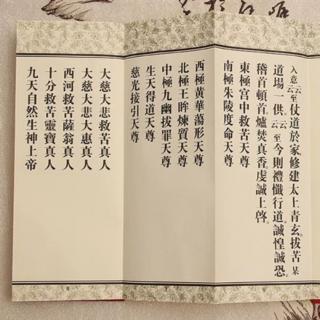 入意云云至仗道於家修建太上青玄拔苦某
道場一供云云至今則禮懺行道誠惶誠恐
稽首頓首爐焚真香虔誠上啓
東極宮中救苦天尊
南極朱陵度命天尊
西極黃華蕩形天尊
北極玉眸煉質天尊
中極九幽拔罪天尊
生天得道天尊
慈光接引天尊
大慈大悲救苦真人
大慈大悲大惠真人
西河救苦薩翁真人
十分救苦靈寶真人
九天自然生神上帝